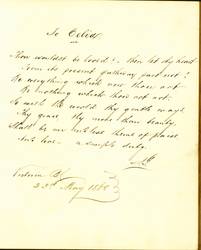 To Celia
Thou wouldst be loved? - then let thy heart
From its present pathway part not!
Be everything which now thou art
Be nothing which thou art not.
So with the world thy gentle ways
Thy grace, thy more than beauty,
Shall be an endless theme of praise
And love - a simple duty.
May